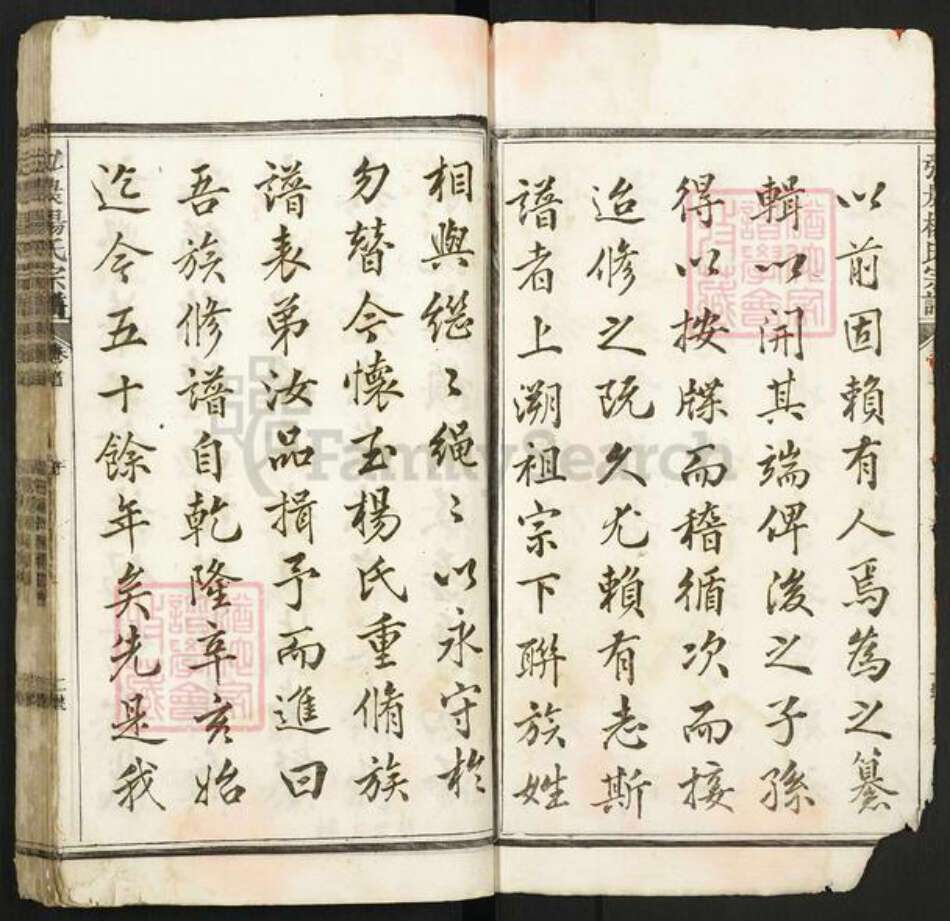 以前固賴有人焉為之纂
輯以開其端俾後之子孫
得以按牒而稽循次而接
迨修之既久尤賴有志斯
譜者上溯祖宗下聯族姓
相與繼〻繩〻以永守於
勿替今懷玉楊氏重脩族
譜表弟汝品揖予而進曰
吾族修譜自乾隆辛亥始
迄今五十餘年矣先是我
楊氏宗譜
楊氏宗譜
卷首
FamilySearch